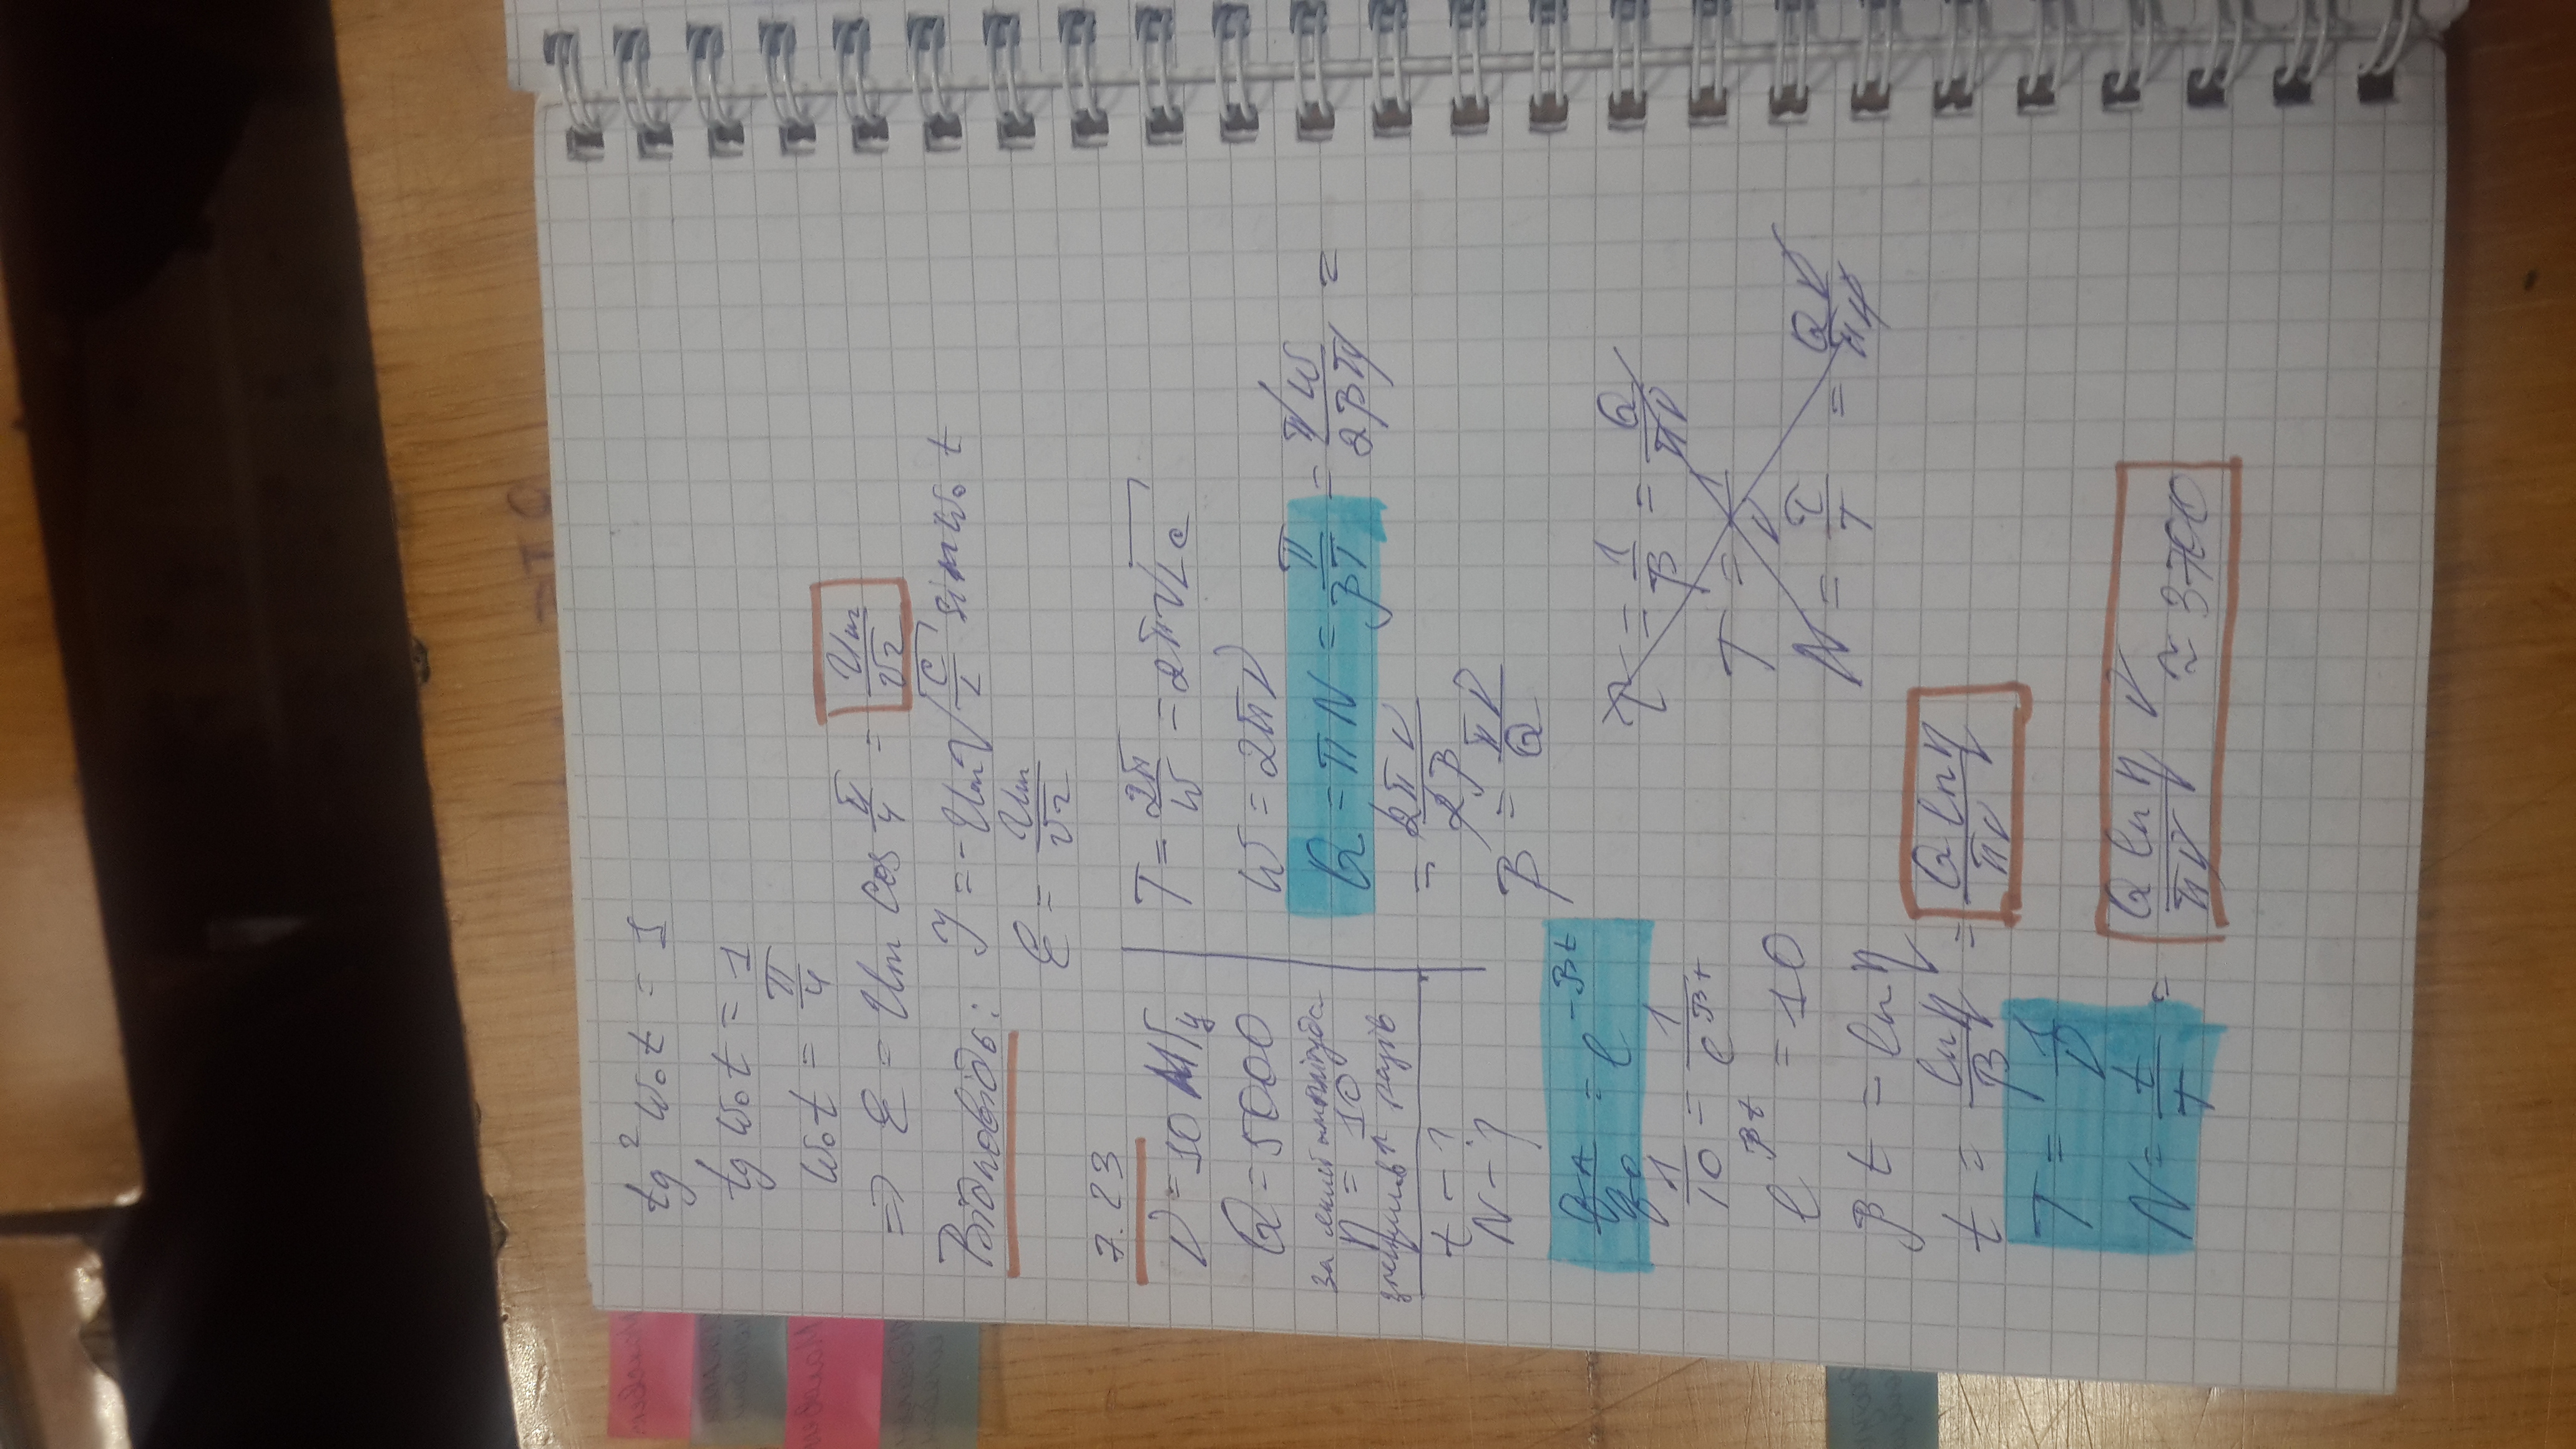 tg² ω₀t = 1
tg ω₀t = 1
ω₀t = π/4
=> ℰ = Um cos π/4 = Um/√2
Відповідь: I = -Um √(C/L) sin ω₀ t
ℰ = Um/√2
7.23
ν = 10 МГц
Q = 5000
За який амплітуда
η = 10
разів
t - ?
N - ?
T = 2π/ω = 2π√LC
ω = 2πν
Q = πN = π/βT = πω/2βπ =
= 2πν/2β
β = πν/Q
= e^(-βt)
1/10 = 1/e^(βt)
e^(βt) = 10
βt = ln η
t = ln η/β = Q ln η/πν
T = 1/ν
N = t/T = Q ln η/πν ν ≈ 3700
τ = 1/β = Q/πν
T = 1/ν
N = τ/T = Qν/πν